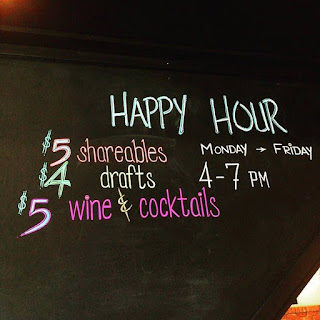 HAPPY HOUR
$5 shareables
$4 drafts
$5 wine & cocktails
MONDAY → FRIDAY
4-7 PM